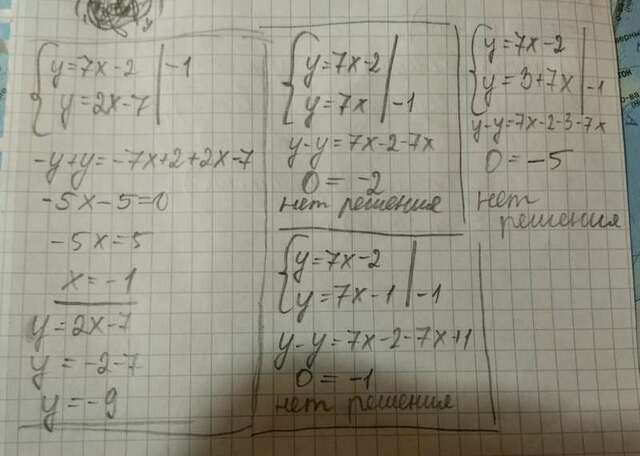 y=7x-2 | -1
y=2x-7
-y+y=-7x+2+2x-7
-5x-5=0
-5x=5
x=-1
y=2x-7
y=-2-7
y=-9
y=7x-2
y=7x | -1
y-y=7x-2-7x
0=-2
нет решения
y=7x-2
y=7x-1 | -1
y-y=7x-2-7x+1
0=-1
нет решения
y=7x-2
y=3+7x | -1
y-y=7x-2-3-7x
0=-5
нет
решения